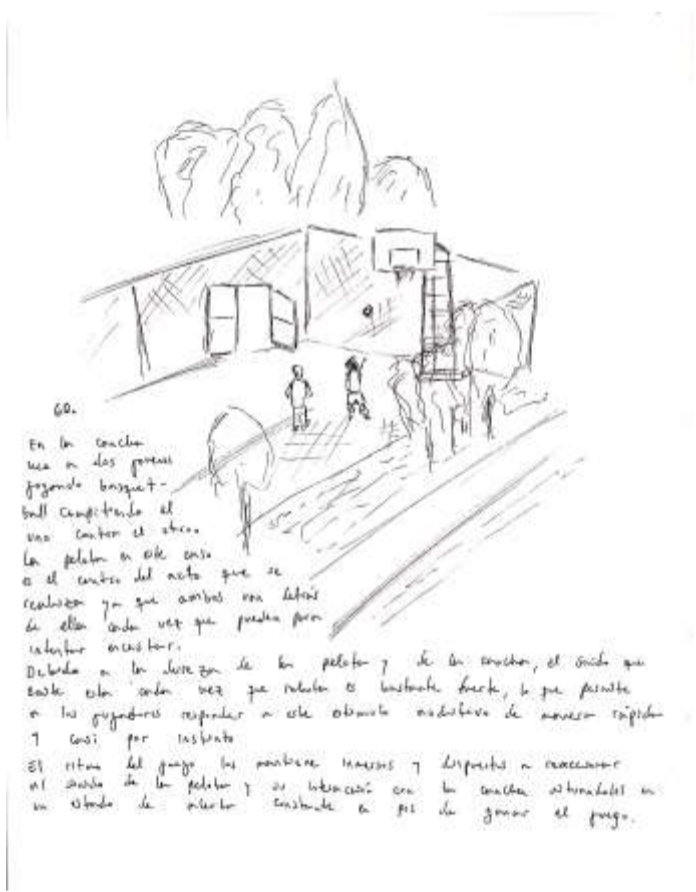 60.
En la cancha
vea a dos jovenes
jugando basquet-
ball compitiendo el
uno contra el otro.
La pelota en este caso
es el centro del acto que se
realiza ya que ambos van detras
de ella cada vez que pueden para
intentar encestar.
Debido a la dureza de la pelota y de la cancha, el sonido que
emite esta cada vez que rebota es bastante fuerte, lo que permite
a los jugadores responder a este estimulo auditivo de manera rápida
y casi por instinto
El ritmo del juego los mantiene inmersos y dispuestos a reaccionar
al sonido de la pelota y su interacción con la cancha en
un estado de alerta constante en pos de ganar el juego.